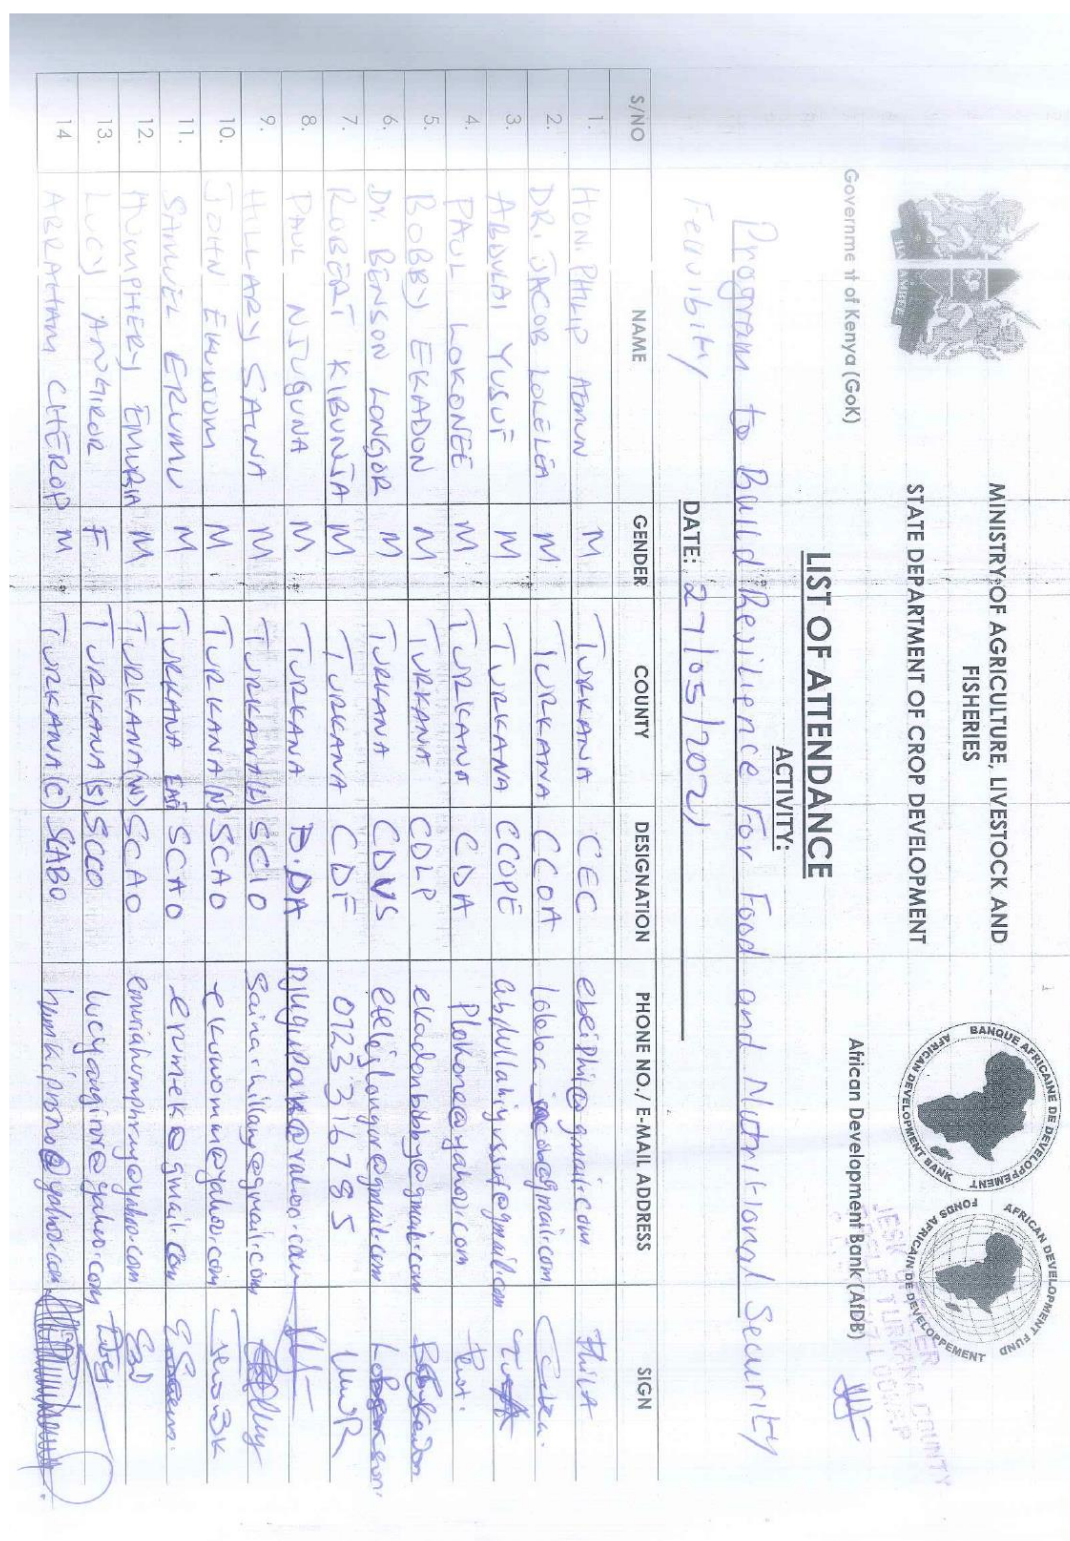 MINISTRY OF AGRICULTURE, LIVESTOCK AND
FISHERIES
STATE DEPARTMENT OF CROP DEVELOPMENT
BANQUE AFRICAINE DE DEVELOPPEMENT
AFRICAN DEVELOPMENT BANK
AFRICAN DEVELOPMENT FUND
FONDS AFRICAIN DE DEVELOPPEMENT
Government of Kenya (GoK)
African Development Bank (AfDB)
TURKANA COUNTY
LIST OF ATTENDANCE
ACTIVITY:
Program to Build Resilience For Food and Nutritional Security
DATE: 27/05/2021
S/NO NAME GENDER COUNTY DESIGNATION PHONE NO./ E-MAIL ADDRESS SIGN
1. HON. PHILIP M TURKANA CEC ebeiphil@gmail.com
2. DR. JACOB LOLELEA M TURKANA CCOA
3. ABDULAI YUSUF M TURKANA CCOPE abdullahiyussuf@gmail.com
4. PAUL LOKONE M TURKANA CDA Plokone@yahoo.com
5. BOBBY EKADON M TURKANA CDLP ekadonbobby@gmail.com
6. Dr. BENSON LONGOR M TURKANA CDVS
7. ROBERT KIBUNJA M TURKANA CDF 0723316785
8. PAUL NJUGUNA M TURKANA D.DA
9. HILLARY SAINA M TURKANA SCIO saina.hillary@gmail.com
10. JOHN EKUWOM M TURKANA (N) SCAO
11. SAMUEL ERUMU M TURKANA EAST SCAO erumek@gmail.com
12. HUMPHERY EMURIA M TURKANA (W) SCAO emuriahumphrey@yahoo.com
13. LUCY ANGIROR F TURKANA (S) SCCO lucyangiror@yahoo.com
14 ABRAHAM CHEROP M TURKANA (C) SCABO